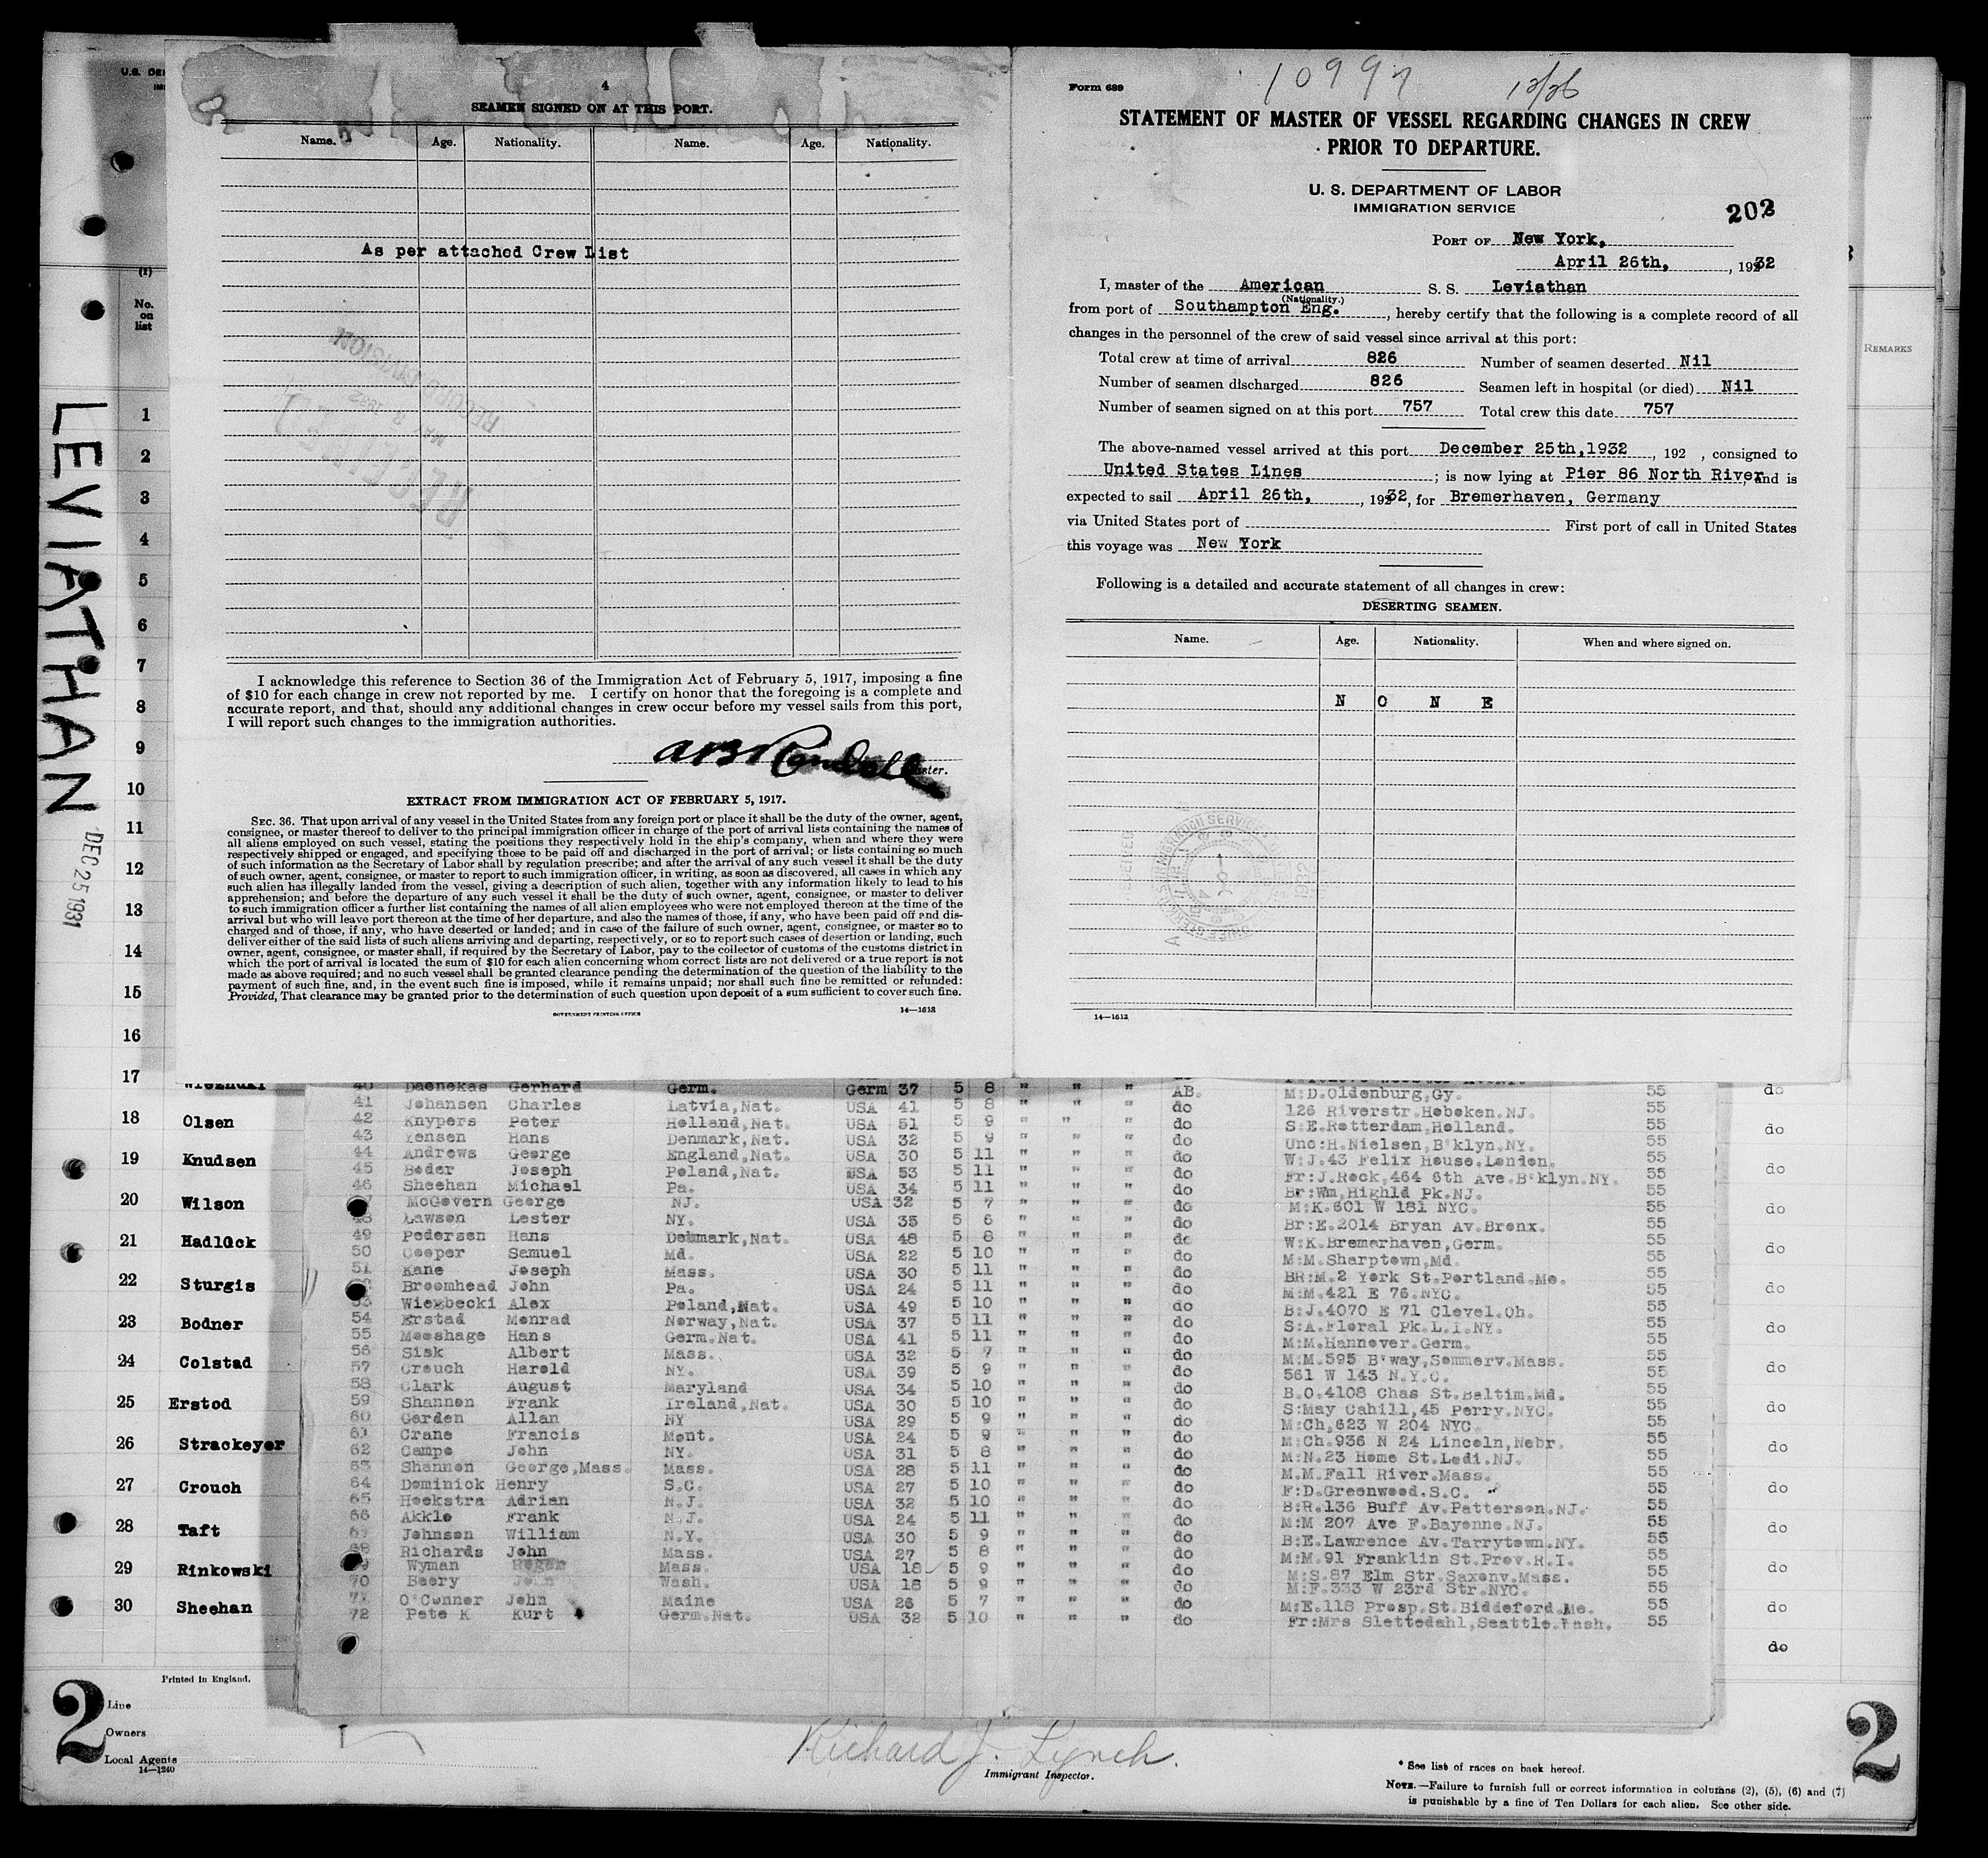 4
SEAMEN SIGNED ON AT THIS PORT.
Name. Age. Nationality. Name. Age. Nationality.
As per attached Crew List
RECEIVED
MAY 3 1932
RECORD DIVISION
I acknowledge this reference to Section 36 of the Immigration Act of February 5, 1917, imposing a fine
of $10 for each change in crew not reported by me. I certify on honor that the foregoing is a complete and
accurate report, and that, should any additional changes in crew occur before my vessel sails from this port,
I will report such changes to the immigration authorities.
EXTRACT FROM IMMIGRATION ACT OF FEBRUARY 5, 1917.
SEC. 36. That upon arrival of any vessel in the United States from any foreign port or place it shall be the duty of the owner, agent,
consignee, or master thereof to deliver to the principal immigration officer in charge of the port of arrival lists containing the names of
all aliens employed on such vessel, stating the positions they respectively hold in the ship's company, when and where they were
respectively shipped or engaged, and specifying those to be paid off and discharged in the port of arrival; or lists containing so much
of such information as the Secretary of Labor shall by regulation prescribe; and after the arrival of any such vessel it shall be the duty
of such owner, agent, consignee, or master to report to such immigration officer, in writing, as soon as discovered, all cases in which any
such alien has illegally landed from the vessel, giving a description of such alien, together with any information likely to lead to his
apprehension; and before the departure of any such vessel it shall be the duty of such owner, agent, consignee, or master to deliver
to such immigration officer a further list containing the names of all alien employees who were not employed thereon at the time of the
arrival but who will leave port thereon at the time of her departure, and also the names of those, if any, who have been paid off and dis-
charged and of those, if any, who have deserted or landed; and in case of the failure of such owner, agent, consignee, or master so to
deliver either of the said lists of such aliens arriving and departing, respectively, or so to report such cases of desertion or landing, such
owner, agent, consignee, or master shall, if required by the Secretary of Labor, pay to the collector of customs of the customs district in
which the port of arrival is located the sum of $10 for each alien concerning whom correct lists are not delivered or a true report is not
made as above required; and no such vessel shall be granted clearance pending the determination of the question of the liability to the
payment of such fine, and, in the event such fine is imposed, while it remains unpaid; nor shall such fine be remitted or refunded:
Provided, That clearance may be granted prior to the determination of such question upon deposit of a sum sufficient to cover such fine.
GOVERNMENT PRINTING OFFICE 14—1613
Form 689
10997 12/26
STATEMENT OF MASTER OF VESSEL REGARDING CHANGES IN CREW
PRIOR TO DEPARTURE.
U. S. DEPARTMENT OF LABOR
IMMIGRATION SERVICE
PORT OF New York,
April 26th, , 1932
I, master of the American S. S. Leviathan
(Nationality.)
from port of Southampton Eng. , hereby certify that the following is a complete record of all
changes in the personnel of the crew of said vessel since arrival at this port:
Total crew at time of arrival 826 Number of seamen deserted Nil
Number of seamen discharged 826 Seamen left in hospital (or died) Nil
Number of seamen signed on at this port 757 Total crew this date 757
The above-named vessel arrived at this port December 25th,1932 , 192 , consigned to
United States Lines ; is now lying at Pier 86 North River, and is
expected to sail April 26th, , 1932, for Bremerhaven, Germany
via United States port of First port of call in United States
this voyage was New York
Following is a detailed and accurate statement of all changes in crew:
DESERTING SEAMEN.
Name. Age. Nationality. When and where signed on.
N O N E
14—1613
(1)
No.
on
list
REMARKS
LEVIATHAN
DEC 25 1931
1
2
3
4
5
6
7
8
9
10
11
12
13
14
15
16
17
18 Olsen
19 Knudsen
20 Wilson
21 Hadlock
22 Sturgis
23 Bodner
24 Colstad
25 Erstod
26 Strackeyer
27 Crouch
28 Taft
29 Rinkowski
30 Sheehan
40 Daenekas Gerhard Germ. Germ 37 5 8 " " " AB. M:D.Oldenburg,Gy. 55 do
41 Johansen Charles Latvia,Nat. USA 41 5 8 " " " do 126 Riverstr.Hoboken.NJ. 55
42 Knypers Peter Holland,Nat. USA 51 5 9 " " " do S:E.Rotterdam,Holland. 55 do
43 Yensen Hans Denmark,Nat. USA 32 5 9 " " " do Unc:H.Nielsen,B'klyn.NY. 55
44 Andrews George England,Nat. USA 30 5 11 " " " do W:J.43 Felix House.London. 55
45 Boder Joseph Poland,Nat. USA 53 5 11 " " " do Fr:J.Rock,464 6th Ave.B'klyn.NY. 55 do
46 Sheehan Michael Pa. USA 34 5 11 " " " do Br:Wm,Highld Pk.NJ. 55
McGovern George NJ. USA 32 5 7 " " " do M:K.601 W 181 NYC. 55 do
48 Lawson Lester NY. USA 35 5 6 " " " do Br:E.2014 Bryan Av.Bronx. 55
49 Pedersen Hans Denmark,Nat. USA 48 5 8 " " " do W:K.Bremerhaven,Germ. 55 do
50 Cooper Samuel Md. USA 22 5 10 " " " do M:M.Sharptown,Md. 55
51 Kane Joseph Mass. USA 30 5 11 " " " do BR:M.2 York St.Portland.Me. 55
Broomhead John Pa. USA 24 5 11 " " " do M:M.421 E 76.NYC. 55 do
53 Wiezbecki Alex Poland,Nat. USA 49 5 10 " " " do B:J.4070 E 71 Clevel.Oh. 55
54 Erstad Monrad Norway,Nat. USA 37 5 11 " " " do S:A.Floral Pk.L.I.NY. 55 do
55 Mooshage Hans Germ.Nat. USA 41 5 11 " " " do M:M.Hannover.Germ. 55
56 Sisk Albert Mass. USA 32 5 7 " " " do M:M.595 B'way,Sommerv.Mass. 55 do
57 Crouch Harold NY. USA 39 5 9 " " " do 561 W 143 N.Y.C. 55
58 Clark August Maryland USA 34 5 10 " " " do B.O.4108 Chas St.Baltim.Md. 55
59 Shannon Frank Ireland,Nat. USA 30 5 10 " " " do S:May Cahill,45 Perry.NYC. 55 do
60 Gorden Allan NY USA 29 5 9 " " " do M:Ch,623 W 204 NYC. 55
61 Crane Francis Mont. USA 24 5 9 " " " do M:Ch.936 N 24 Lincoln,Nebr. 55 do
62 Campo John NY. USA 31 5 8 " " " do M:N.23 Home St.Lodi.NJ. 55
63 Shannon George,Mass. Mass. USA 28 5 11 " " " do M.M.Fall River.Mass. 55
64 Dominick Henry S.C. USA 27 5 10 " " " do F:D.Greenwood.S.C. 55 do
65 Hoekstra Adrian N.J. USA 32 5 10 " " " do B:R.136 Buff Av.Patterson.NJ. 55
66 Akkle Frank N.J. USA 24 5 11 " " " do M:M 207 Ave F.Bayonne.NJ. 55 do
67 Johnson William N.Y. USA 30 5 9 " " " do B:E.Lawrence Av.Tarrytown.NY. 55
68 Richards John Mass. USA 27 5 8 " " " do M:M.91 Franklin St.Prov.R.I. 55 do
Wyman Roger Mass. USA 18 5 9 " " " do M:S.87 Elm Str.Saxonv.Mass. 55
70 Beery John Wash. USA 18 5 9 " " " do M:F.333 W 23rd Str.NYC. 55
71 O'Connor John Maine USA 26 5 7 " " " do M:E.118 Prosp.St.Biddeford.Me. 55 do
72 Pete K Kurt Germ.Nat. USA 32 5 10 " " " do Fr:Mrs Slettedahl,Seattle.Wash. 55
do
Printed in England.
2
Line
Owners
Local Agents
14—1240
Richard J. Lynch.
Immigrant Inspector.
* See list of races on back hereof.
NOTE.—Failure to furnish full or correct information in columns (2), (5), (6) and (7)
is punishable by a fine of Ten Dollars for each alien. See other side.
2